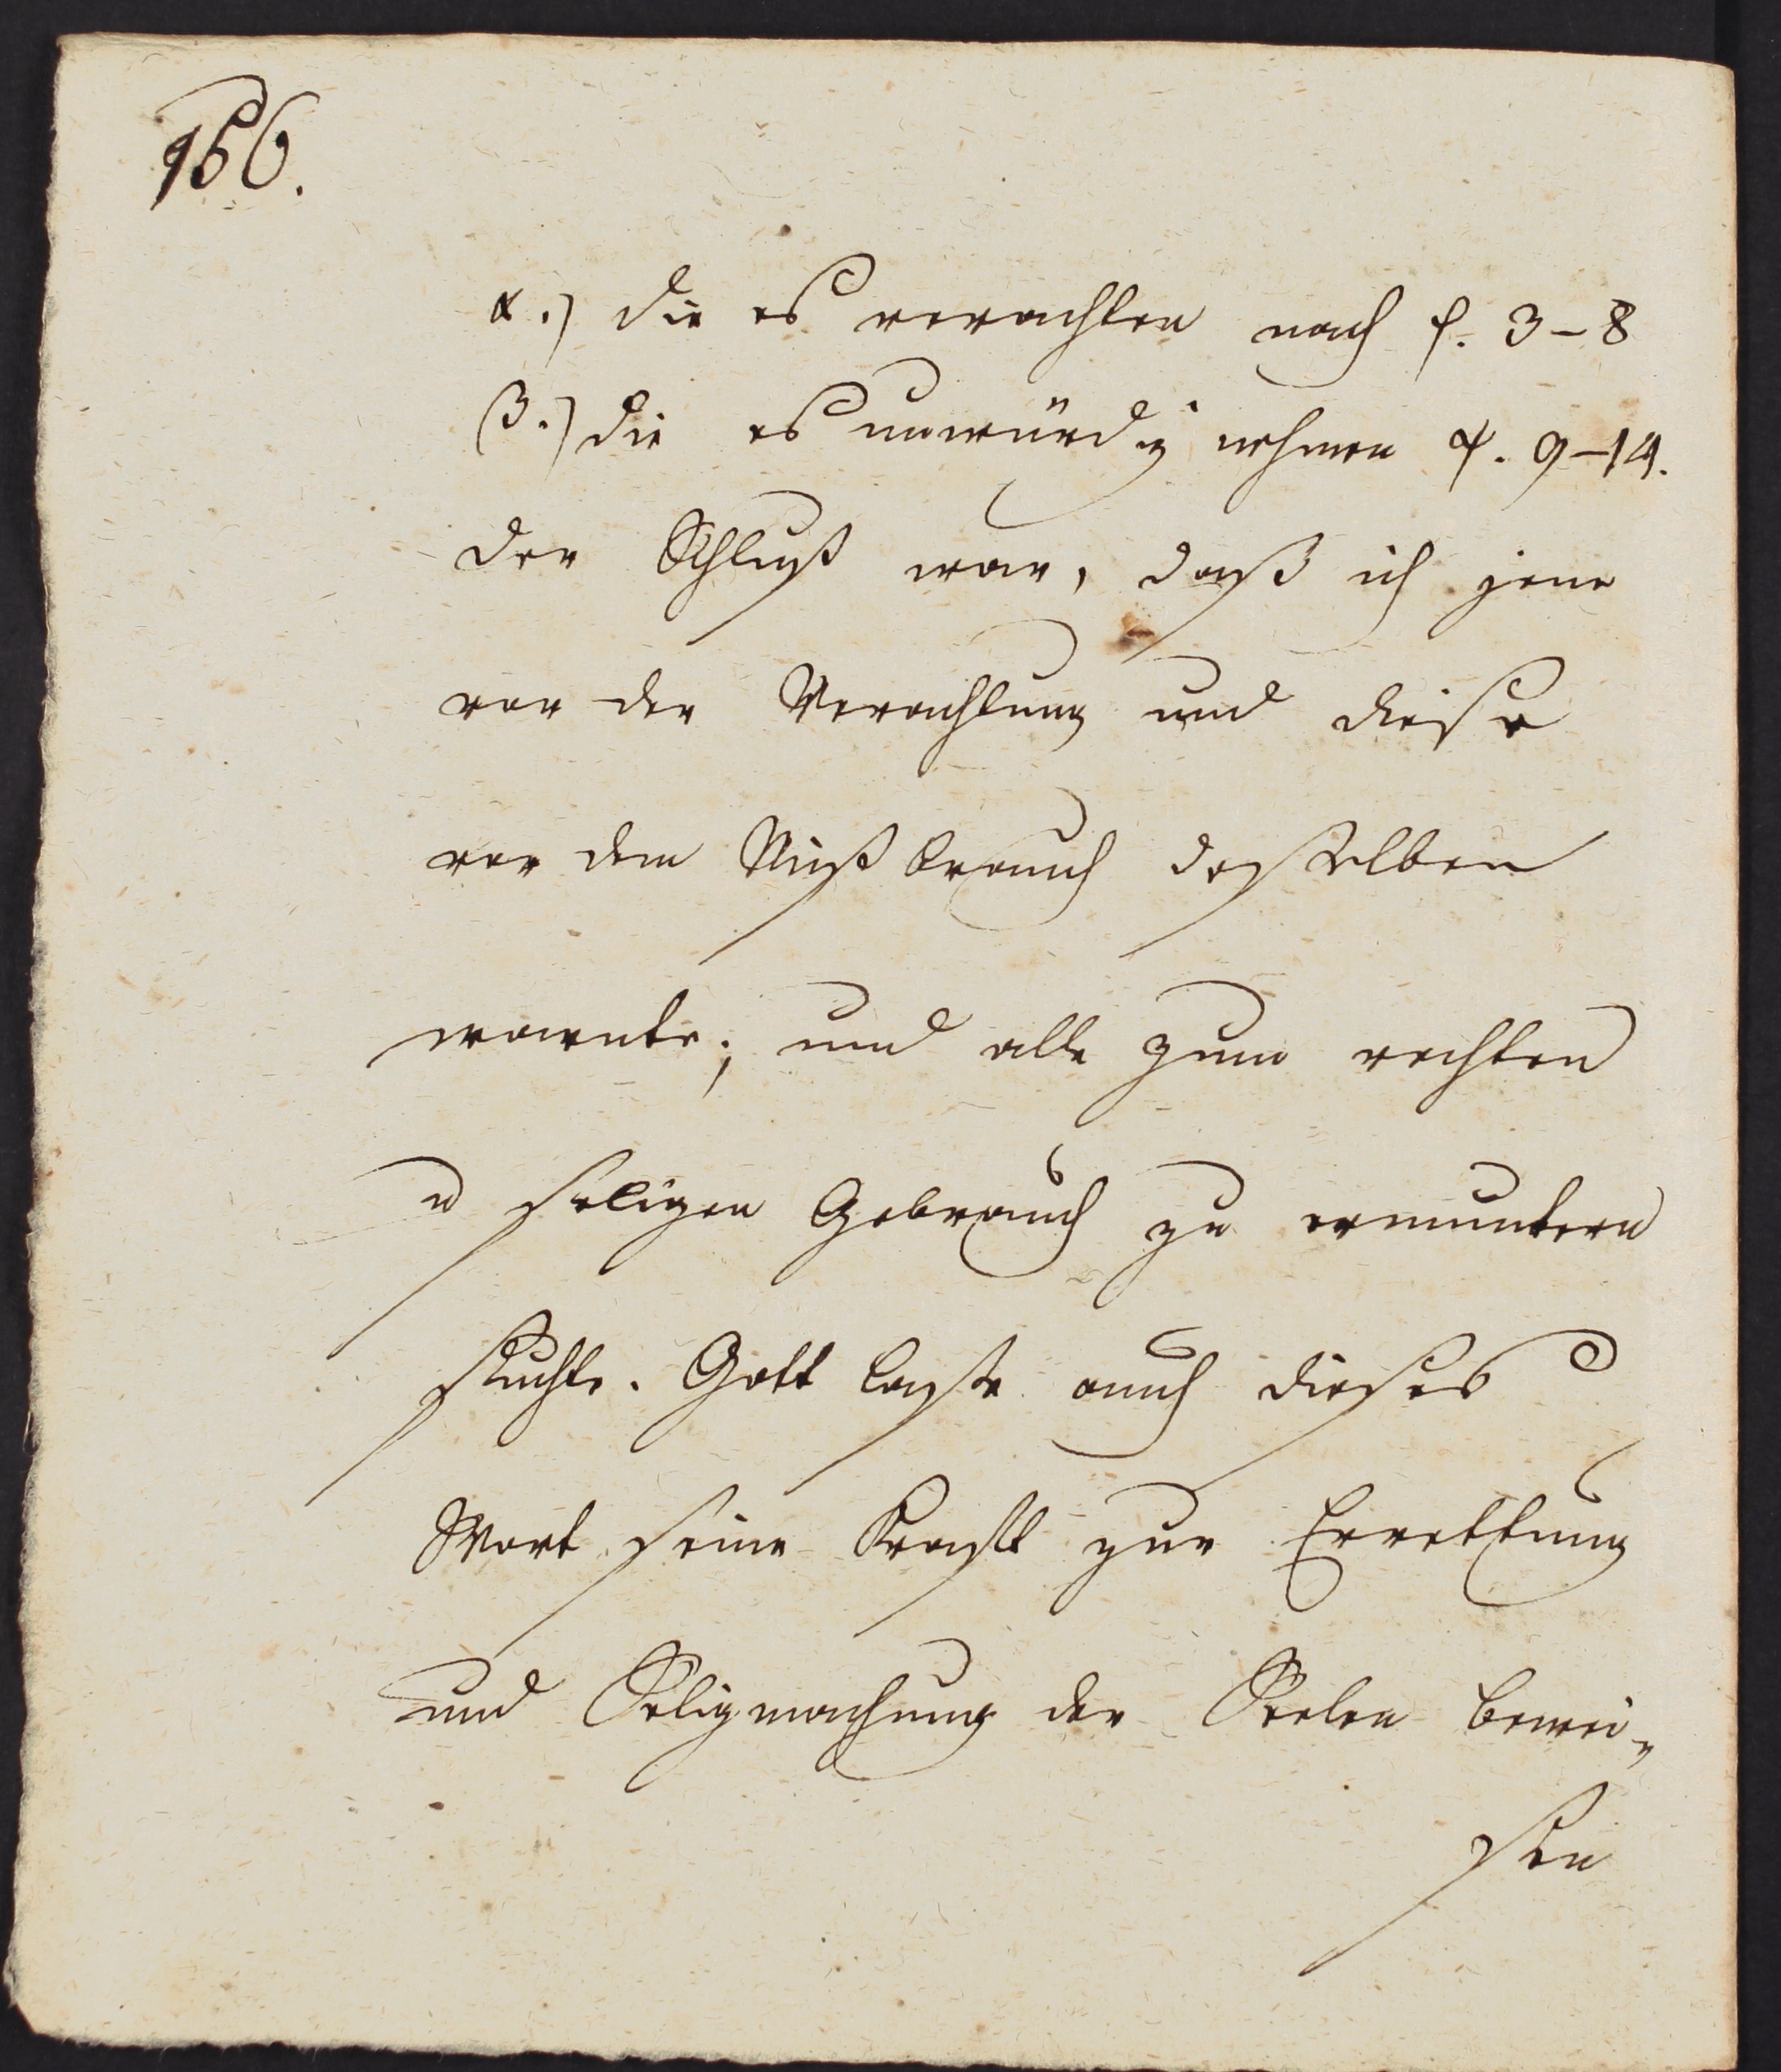 156.
α.) die es verachten nach v. 3–8
β.) die es unwürdig nehmen v. 9–14.
der Schluß war, daß ich jene
vor der Verachtung und diese
vor dem Mißbrauch desselben
warnte; und alle zum rechten
u seligen Gebrauch zu ermuntern
suchte. Gott lasse auch dieses
Wort seine Kraft zur Errettung
und Seligmachung der Seelen bewei-
sen